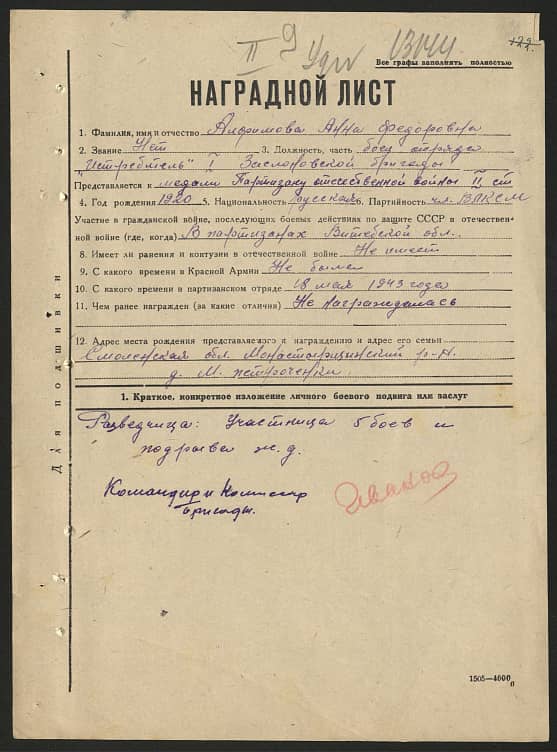 II 9
122
Все графы заполнять полностью
НАГРАДНОЙ ЛИСТ
1. Фамилия, имя и отчество Алфимова Анна Федоровна
2. Звание Нет 3. Должность, часть боец отряда
"Истребитель" I Заслоновской бригады
Представляется к медали Партизану отечественной войны II ст
4. Год рождения 1920 5. Национальность русская 6. Партийность чл. ВЛКСМ
Участие в гражданской войне, последующих боевых действиях по защите СССР и отечествен-
ной войне (где, когда) В партизанах Витебской обл.
8. Имеет ли ранения и контузии в отечественной войне Не имеет
9. С какого времени в Красной Армии Не была
10. С какого времени в партизанском отряде 18 мая 1943 года
11. Чем ранее награжден (за какие отличия) Не награждалась
12. Адрес места рождения представляемого к награждению и адрес его семьи
Смоленская обл. Монастырщинский р-н
д. М.
1. Краткое, конкретное изложение личного боевого подвига или заслуг
Разведчица: Участница 5 боев и
подрыва ж.д.
Командир и Комиссар
бригады.
Иванов
Для подшивки
1505—4000